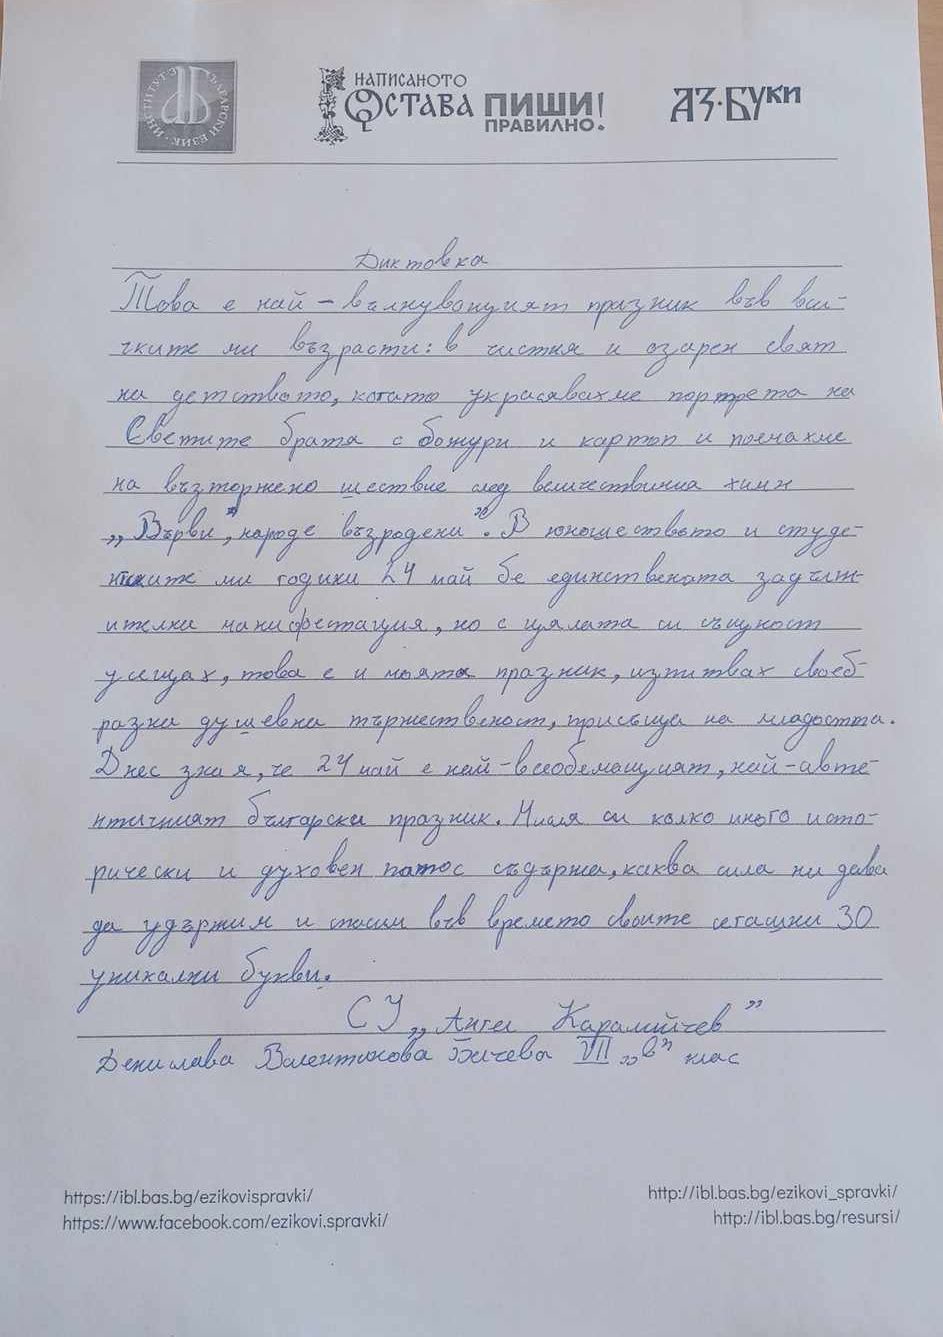 ИНСТИТУТ ЗА БЪЛГАРСКИ ЕЗИК
НАПИСАНОТО
ОСТАВА ПИШИ!
ПРАВИЛНО!
АЗ·БУКИ
Диктовка
Това е най-вълнуванщият празник във вси-
чките ми възрасти: в чистия и озарен свят
на детството, когато украсявахме портрета на
Светите братя с божури и картоп и поемахме
на възторжено шествие след величествиния химн
„Върви, народе възродени". В юношеството и студе-
нтките ми години 24 май бе единствената задълж-
ителна манифестация, но с цялата си същност
усещах, това е и моята празник, изпитвах своеб-
разна душевна тържественост, присъща на младостта.
Днес зная, че 24 май е най-всеобемащият, най-авте-
нтичният български празник. Мисля си колко много исто-
рически и духовен патос съдържа, каква сила ни дава
да удържим и спасим във времето своите сегашни 30
уникални букви.
СУ „Ангел Каралийчев"
Денислава Валентинова Бичева VII „в" клас
https://ibl.bas.bg/ezikovispravki/
http://ibl.bas.bg/ezikovi_spravki/
https://www.facebook.com/ezikovi.spravki/
http://ibl.bas.bg/resursi/